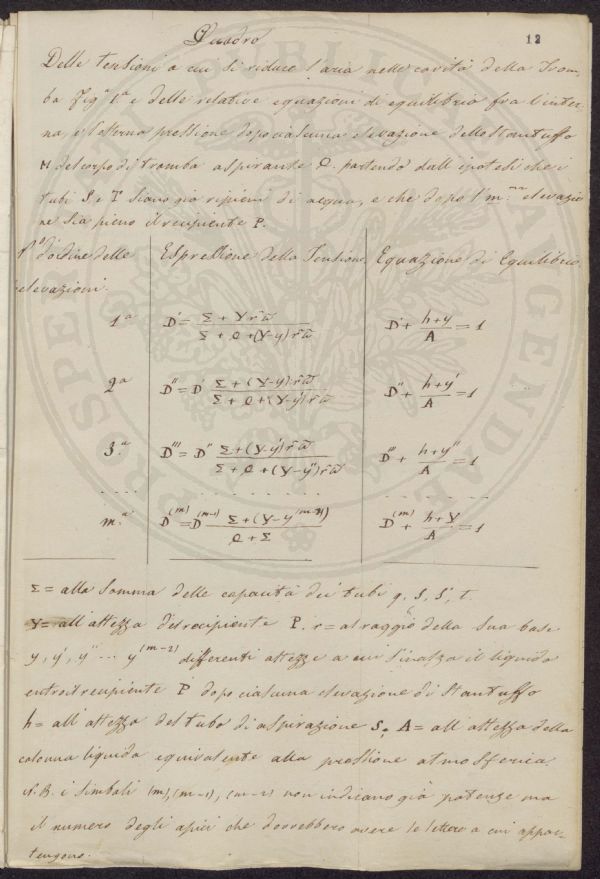 Quadro
12
Delle tensioni a cui si riduce l'aria nelle cavità della Trom-
ba Figª 1ª e delle relative equazioni di equilibrio fra l'inter-
na, e l'esterna pressione dopo ciascuna elevazione dello stantuffo
M del corpo di tromba aspirante Q. partendo dall'ipotesi che i
tubi S e T siano già ripieni di acqua, e che dopo l'm.ma elevazio
ne sia pieno il recipiente P.
N° d'ordine delle | Espressione della Tensione | Equazione di Equilibrio.
elevazioni.
1ª | D' = (Σ + Y r²ϖ) / (Σ + Q + (Y-y) r²ϖ) | D' + (h+y)/A = 1
2ª | D'' = D' (Σ + (Y-y) r²ϖ) / (Σ + Q + (Y-y') r²ϖ) | D'' + (h+y')/A = 1
3.ª | D''' = D'' (Σ + (Y-y') r²ϖ) / (Σ + Q + (Y-y'') r²ϖ) | D''' + (h+y'')/A = 1
. . . . | . . . . . . . . | . . . . . . .
m.ª | D^(m) = D^(m-1) (Σ + (Y-y^(m-2))) / (Q + Σ) | D^(m) + (h+Y)/A = 1
Σ = alla somma delle capacità dei tubi q, S, S', T.
Y = all'altezza del recipiente P. r = al raggio della sua base
y, y', y'' ... y^(m-2) differenti altezze a cui s'inalza il liquido
entro il recipiente P dopo ciascuna elevazione di stantuffo
h = all'altezza del tubo di aspirazione S. A = all'altezza della
colonna liquida equivalente alla pressione atmosferica.
N.B. i simboli (m), (m-1), (m-2) non indicano già potenze ma
il numero degli apici che dovrebbero avere le lettere a cui appar-
tengono.
PROSPERO PUBLICAE AUGENDAE